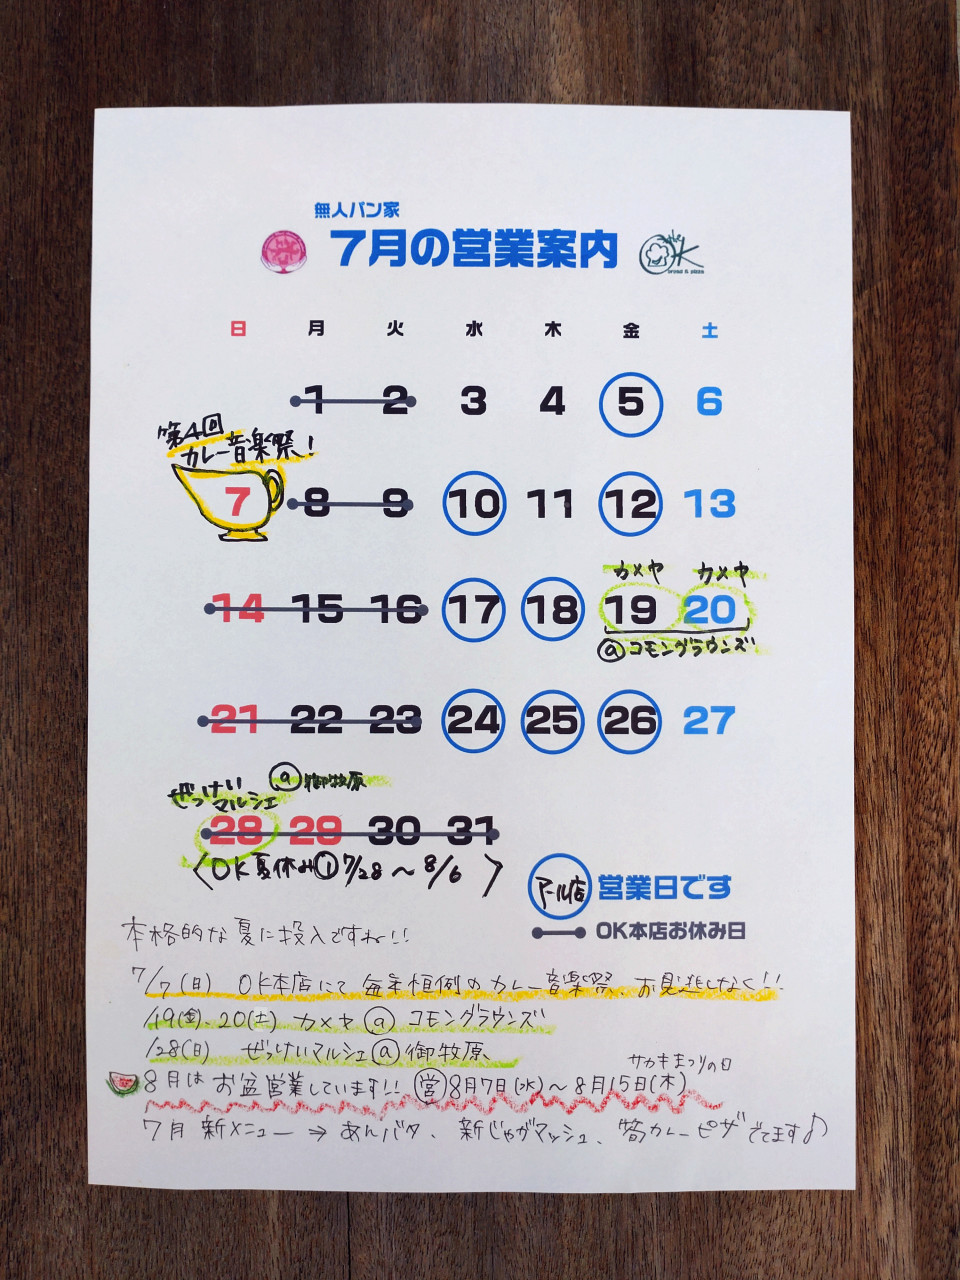 無人パン家
7月の営業案内
the OK
bread & pizza
日 月 火 水 木 金 土
1 2 3 4 5 6
第4回
カレー音楽祭!
7 8 9 10 11 12 13
カメヤ カメヤ
14 15 16 17 18 19 20
@コモングラウンズ
21 22 23 24 25 26 27
ぜっけい
マルシェ
@御牧原
28 29 30 31
〈OK夏休み① 7/28〜8/6 〉
アール店 営業日です
OK本店お休み日
本格的な夏に投入ですね!!
7/7(日) OK本店にて 毎年恒例のカレー音楽祭、お見逃しなく!!
/19(金).20(土) カメヤ @ コモングラウンズ
/28(日) ぜっけいマルシェ@御牧原、
サカキまつりの日
8月は お盆営業しています!! 営 8月7日(水)〜8月15日(木)
7月 新メニュー → あんバタ、新じゃがマッシュ、筍カレーピザ でてます♪